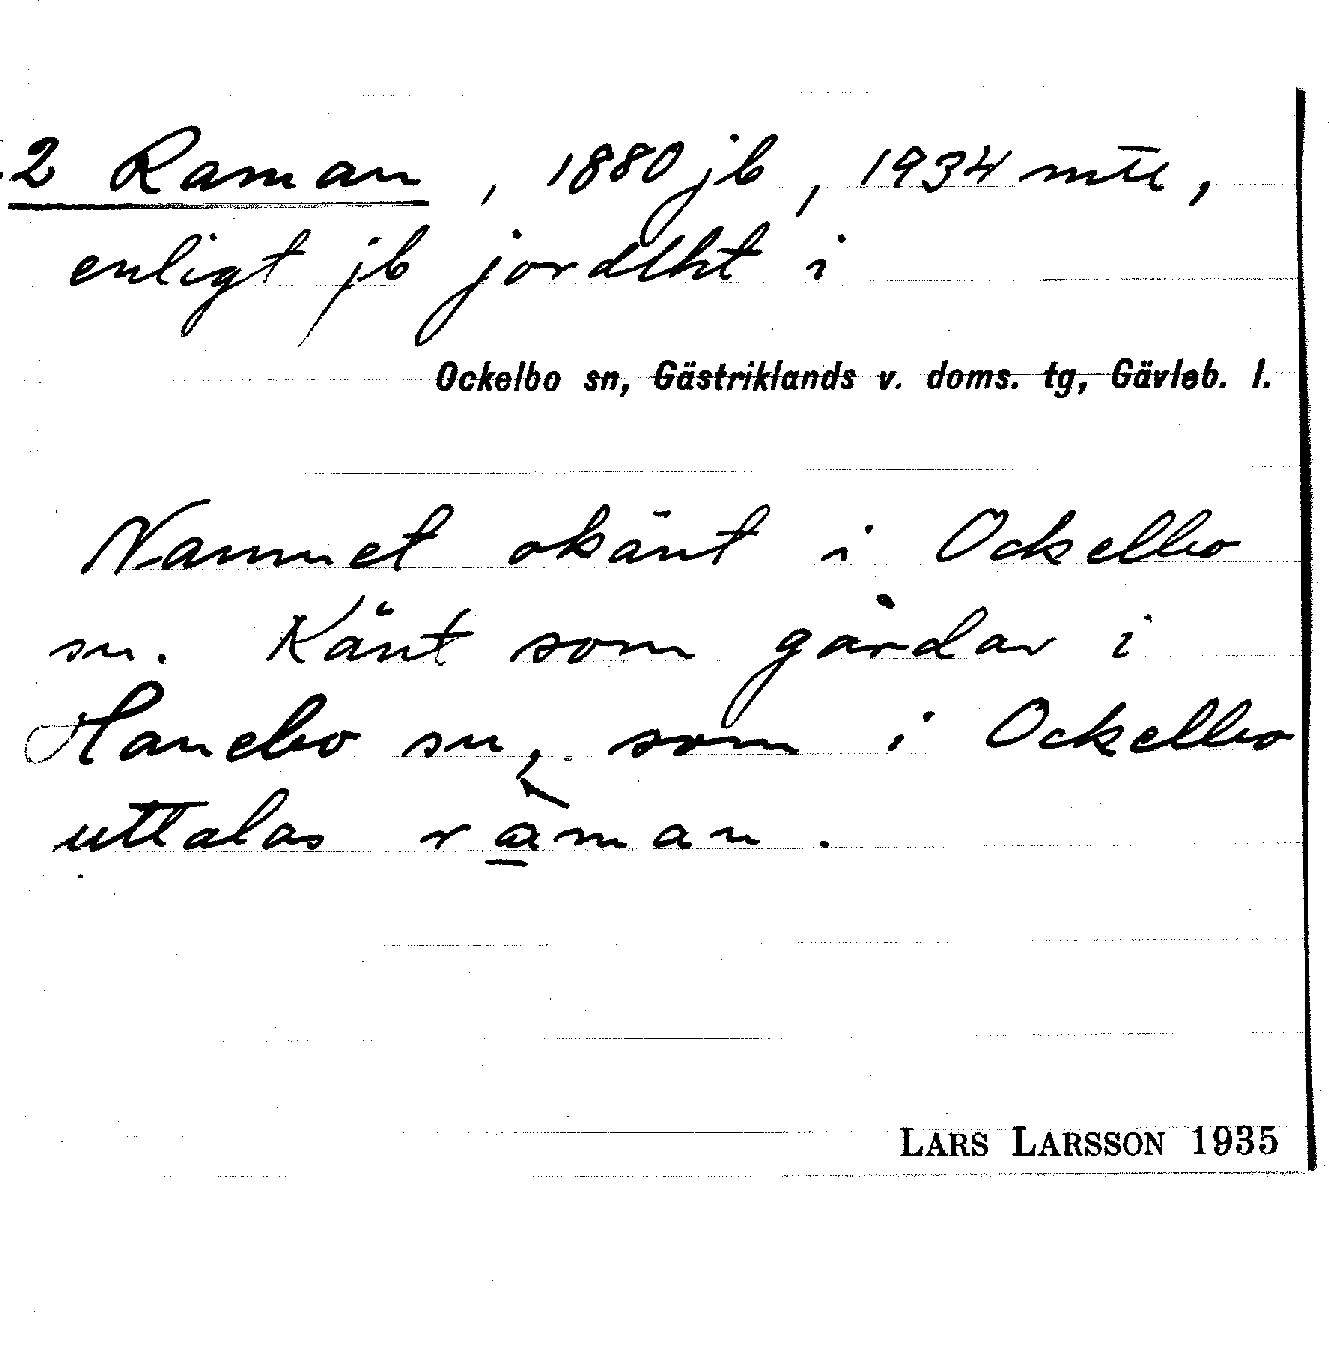 2 Raman, 1880 jb, 1934 mtl,
enligt jb jordlht i
Ockelbo sn, Gästriklands v. doms. tg, Gävleb. l.
Namnet okänt i Ockelbo
sn. Känt som gårdar i
Hanebo sn, som i Ockelbo
uttalas raman.
LARS LARSSON 1935